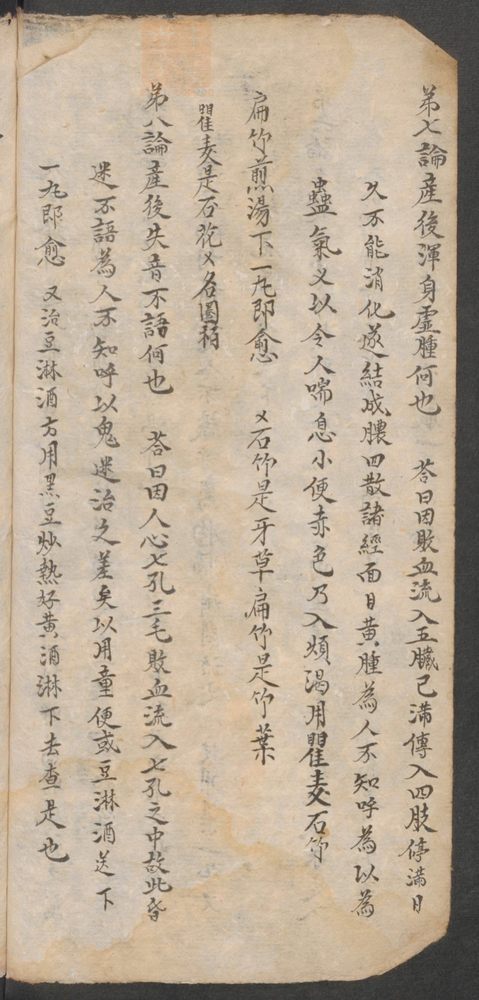 第七論産後渾身虛腫何也　答曰因敗血流入五臟已滿傳入四肢停滿日
久不能消化遂結成膿四散諸經面目黃腫為人不知呼為以為
蠱氣又以令人喘息小便赤色乃入煩渴用瞿麦石竹
扁竹煎湯下一丸即愈　又石竹是牙草扁竹是竹葉
瞿麦是石花又名圖
第八論産後失音不語何也　答曰因人心七孔三毛敗血流入七孔之中故此昏
迷不語為人不知呼以鬼迷治之差矣以用童便或豆淋酒送下
一丸即愈　又治豆淋酒方用黑豆炒熱好黃酒淋下去查是也